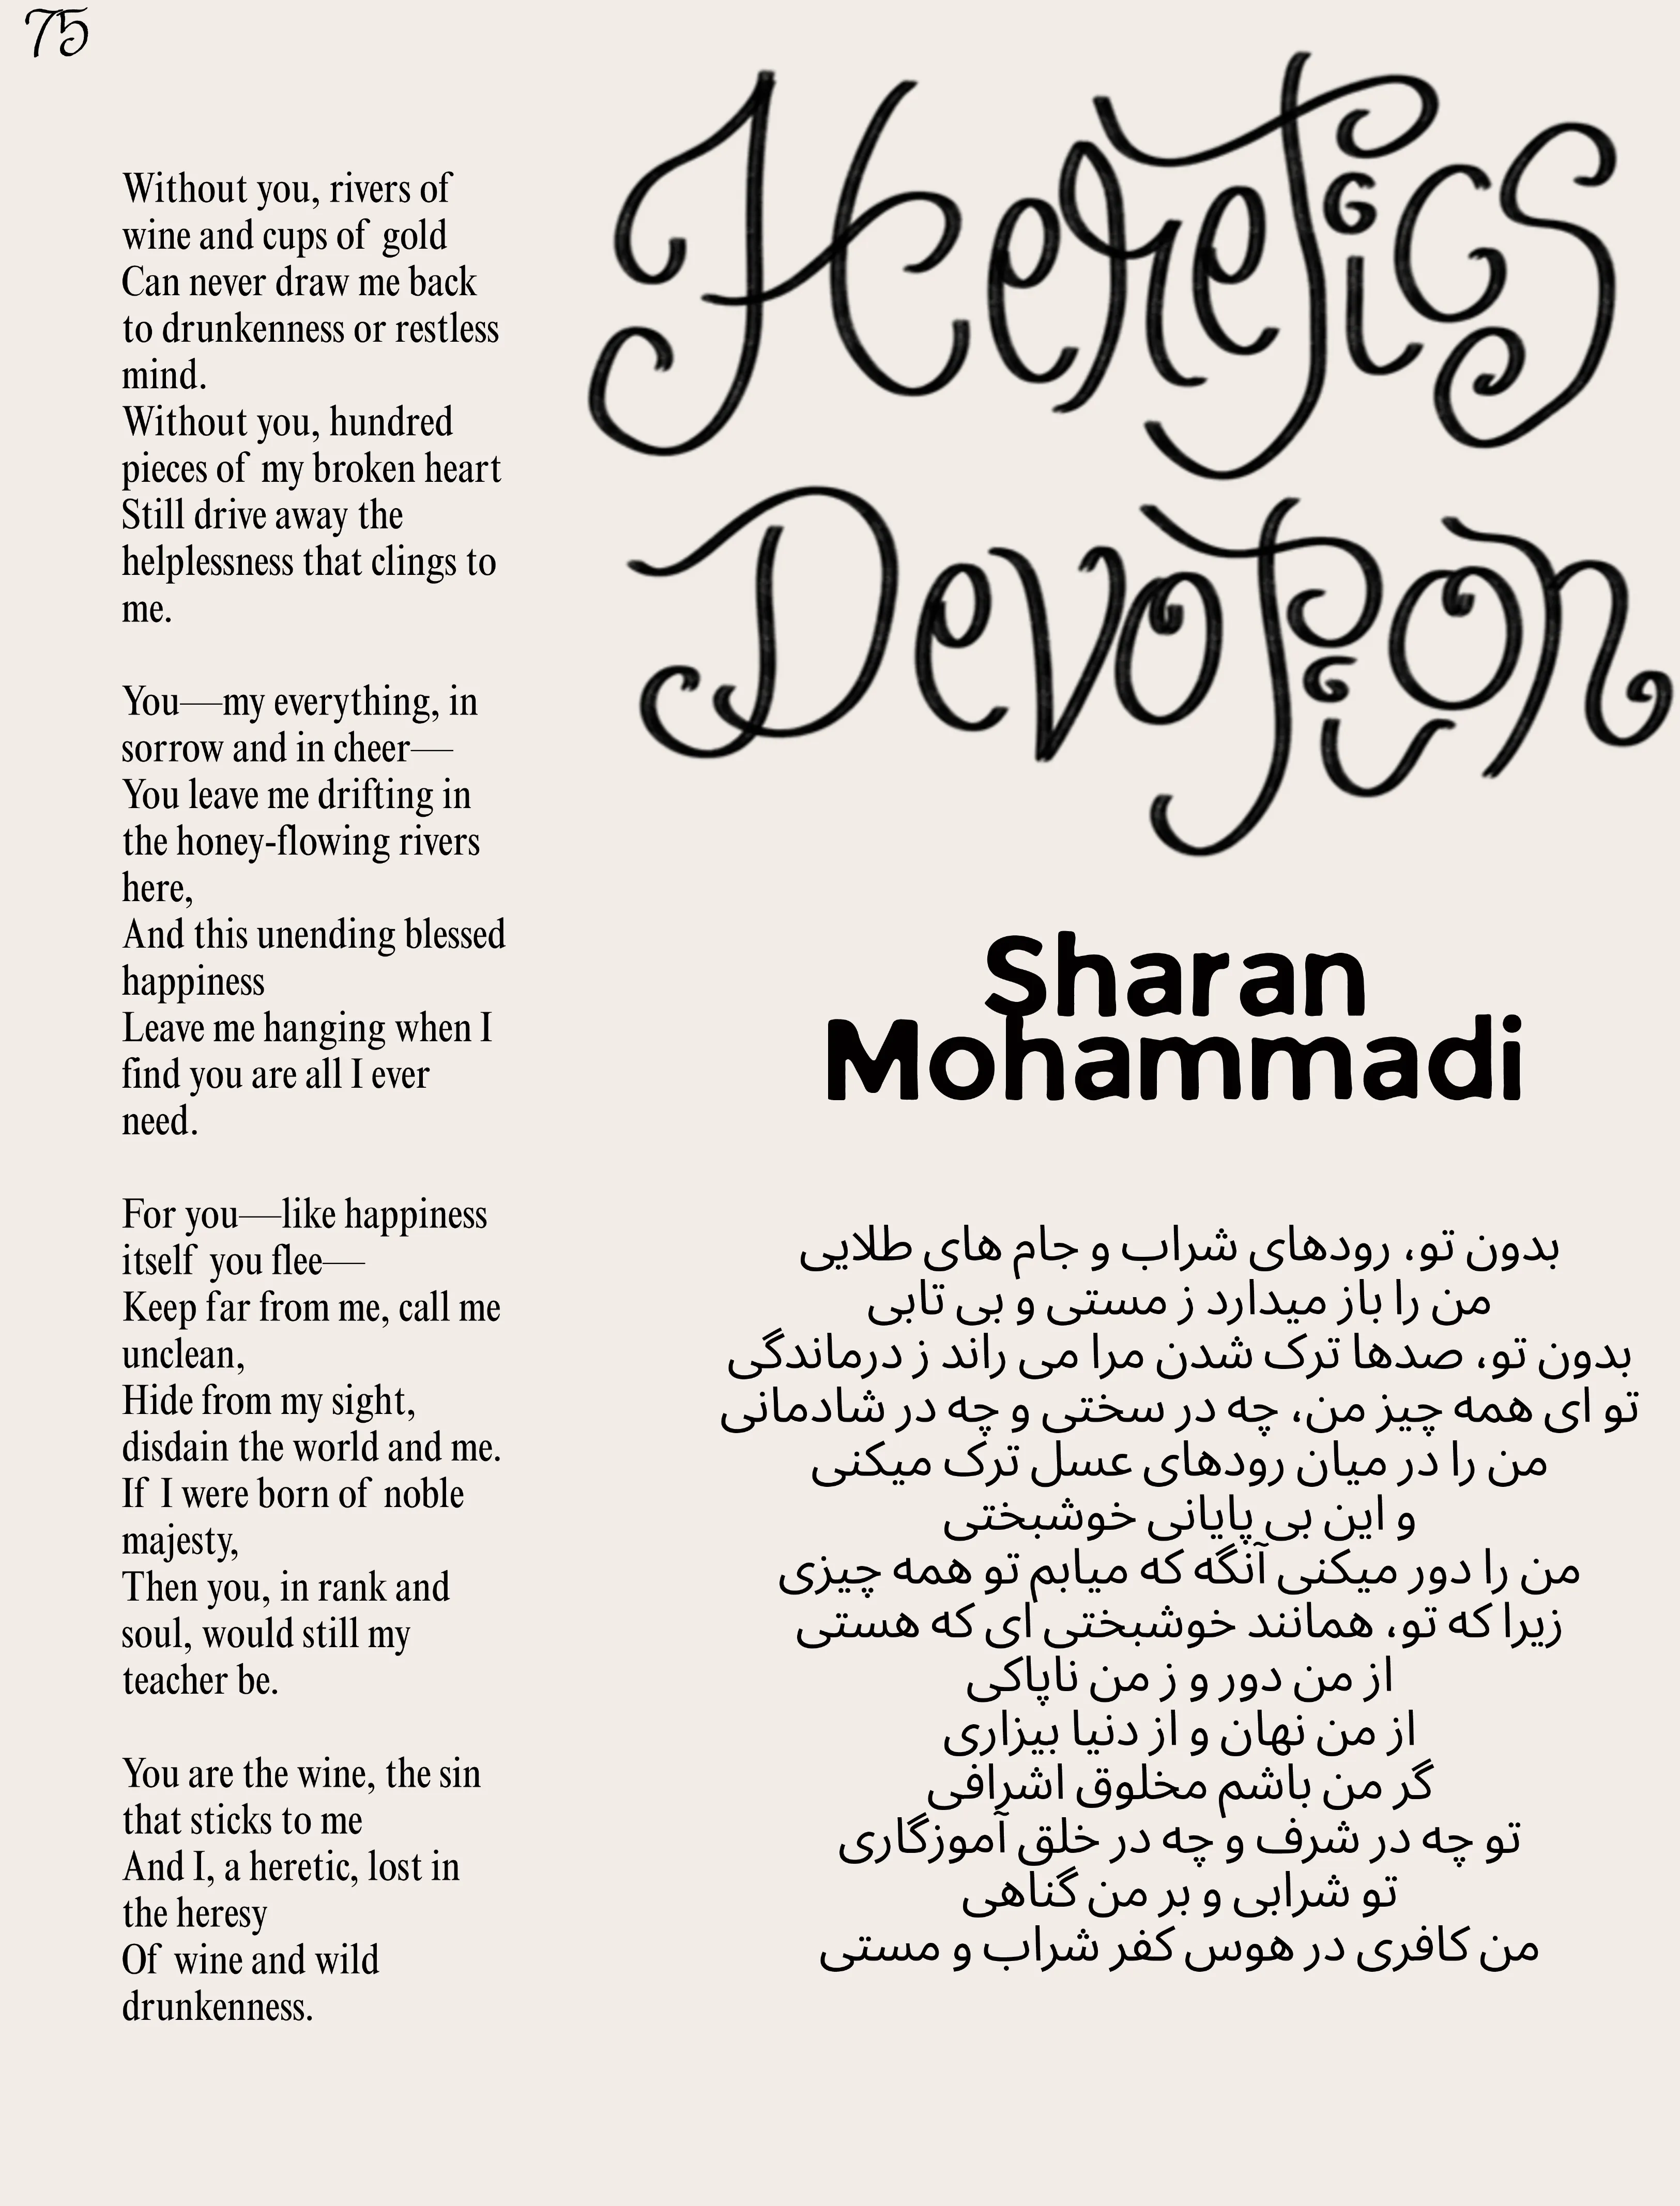 75
Heretics
Devotion
Sharan
Mohammadi
Without you, rivers of
wine and cups of gold
Can never draw me back
to drunkenness or restless
mind.
Without you, hundred
pieces of my broken heart
Still drive away the
helplessness that clings to
me.
You—my everything, in
sorrow and in cheer—
You leave me drifting in
the honey-flowing rivers
here,
And this unending blessed
happiness
Leave me hanging when I
find you are all I ever
need.
For you—like happiness
itself you flee—
Keep far from me, call me
unclean,
Hide from my sight,
disdain the world and me.
If I were born of noble
majesty,
Then you, in rank and
soul, would still my
teacher be.
You are the wine, the sin
that sticks to me
And I, a heretic, lost in
the heresy
Of wine and wild
drunkenness.
بدون تو، رودهای شراب و جام های طلایی
من را باز میدارد ز مستی و بی تابی
بدون تو، صدها ترک شدن مرا می راند ز درماندگی
تو ای همه چیز من، چه در سختی و چه در شادمانی
من را در میان رودهای عسل ترک میکنی
و این بی پایانی خوشبختی
من را دور میکنی آنگه که میابم تو همه چیزی
زیرا که تو، همانند خوشبختی ای که هستی
از من دور و ز من ناپاکی
از من نهان و از دنیا بیزاری
گر من باشم مخلوق اشرافی
تو چه در شرف و چه در خلق آموزگاری
تو شرابی و بر من گناهی
من کافری در هوس کفر شراب و مستی